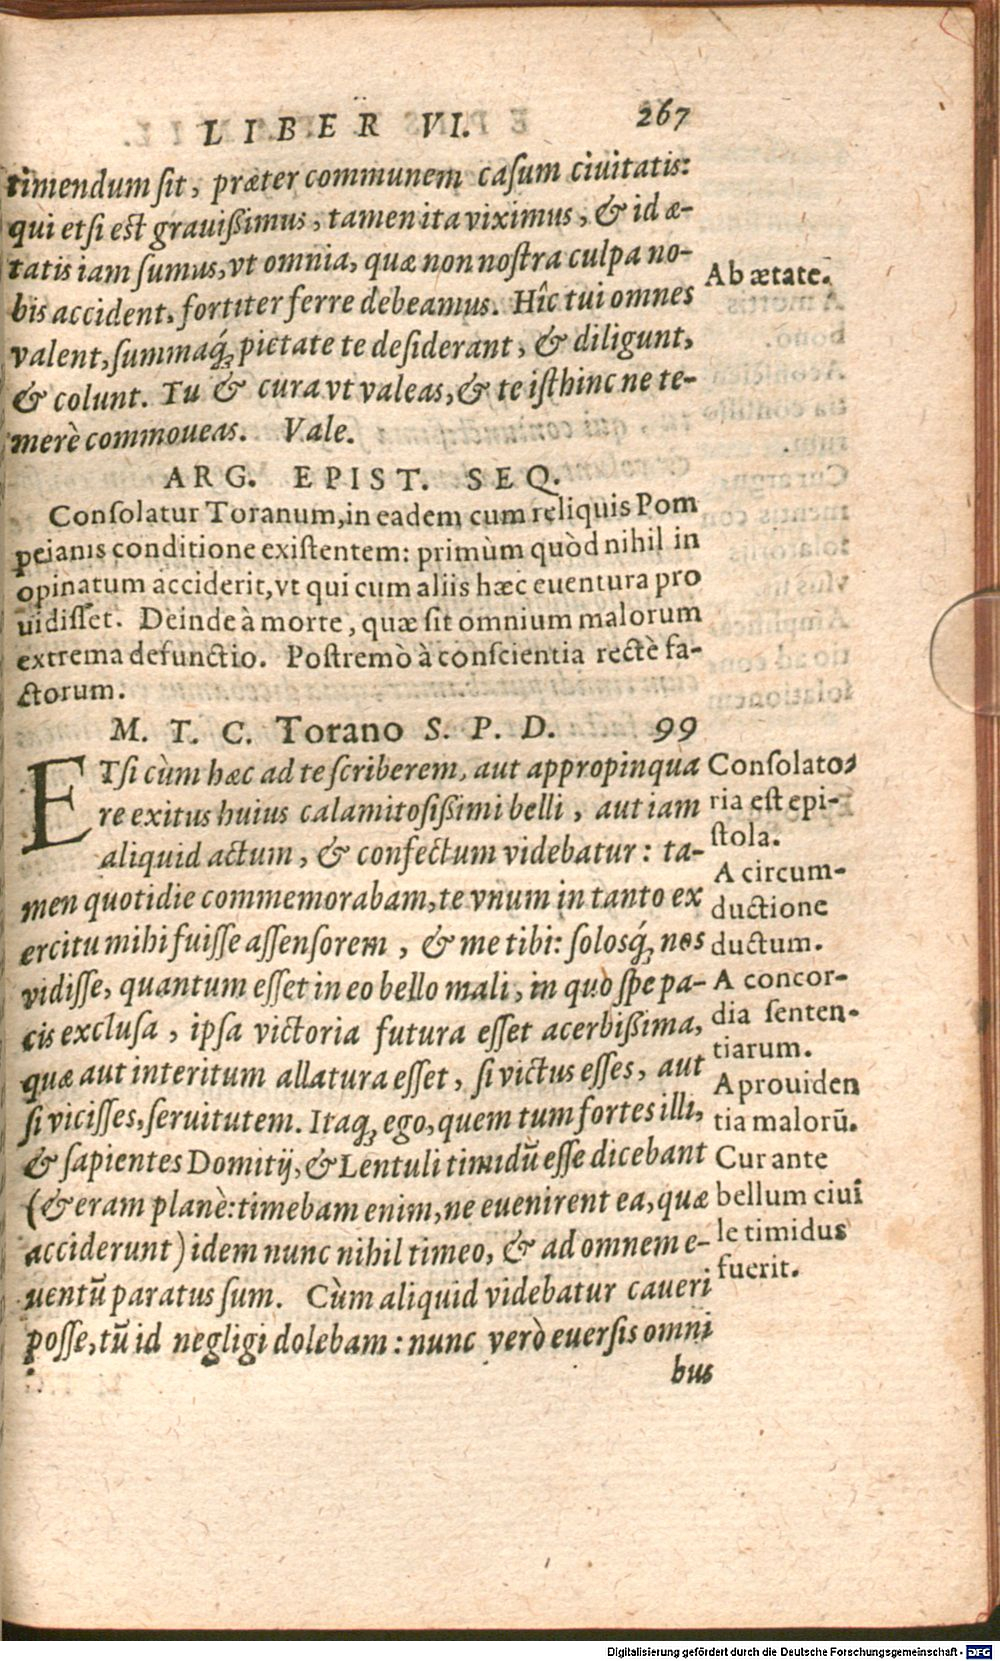 LIBER VI. 267
timendum sit, præter communem casum ciuitatis:
qui etsi est grauißimus, tamen ita viximus, & id æ-
tatis iam sumus, vt omnia, quæ non nostra culpa no-
bis accident, fortiter ferre debeamus. Hîc tui omnes
valent, summaq́; pietate te desiderant, & diligunt,
& colunt. Tu & cura vt valeas, & te isthinc ne te-
merè commoueas. Vale.
Ab ætate.
ARG. EPIST. SEQ.
Consolatur Toranum, in eadem cum reliquis Pom
peianis conditione existentem: primùm quòd nihil in
opinatum acciderit, vt qui cum aliis hæc euentura pro
uidisset. Deinde à morte, quæ sit omnium malorum
extrema defunctio. Postremò à conscientia rectè fa-
ctorum.
M. T. C. Torano S. P. D. 99
ETsi cùm hæc ad te scriberem, aut appropinqua
re exitus huius calamitosißimi belli, aut iam
aliquid actum, & confectum videbatur: ta-
men quotidie commemorabam, te vnum in tanto ex
ercitu mihi fuisse assensorem, & me tibi: solosq́; nos
vidisse, quantum esset in eo bello mali, in quo spe pa-
cis exclusa, ipsa victoria futura esset acerbißima,
quæ aut interitum allatura esset, si victus esses, aut
si vicisses, seruitutem. Itaq; ego, quem tum fortes illi,
& sapientes Domitij, & Lentuli timidū esse dicebant
(& eram planè: timebam enim, ne euenirent ea, quæ
acciderunt) idem nunc nihil timeo, & ad omnem e-
uentū paratus sum. Cùm aliquid videbatur caueri
posse, tū id negligi dolebam: nunc verò euersis omni
bus
Consolato-
ria est epi-
stola.
A circum-
ductione
ductum.
A concor-
dia senten-
tiarum.
A prouiden
tia malorū.
Cur ante
bellum ciui
le timidus
fuerit.
Digitalisierung gefördert durch die Deutsche Forschungsgemeinschaft - DFG